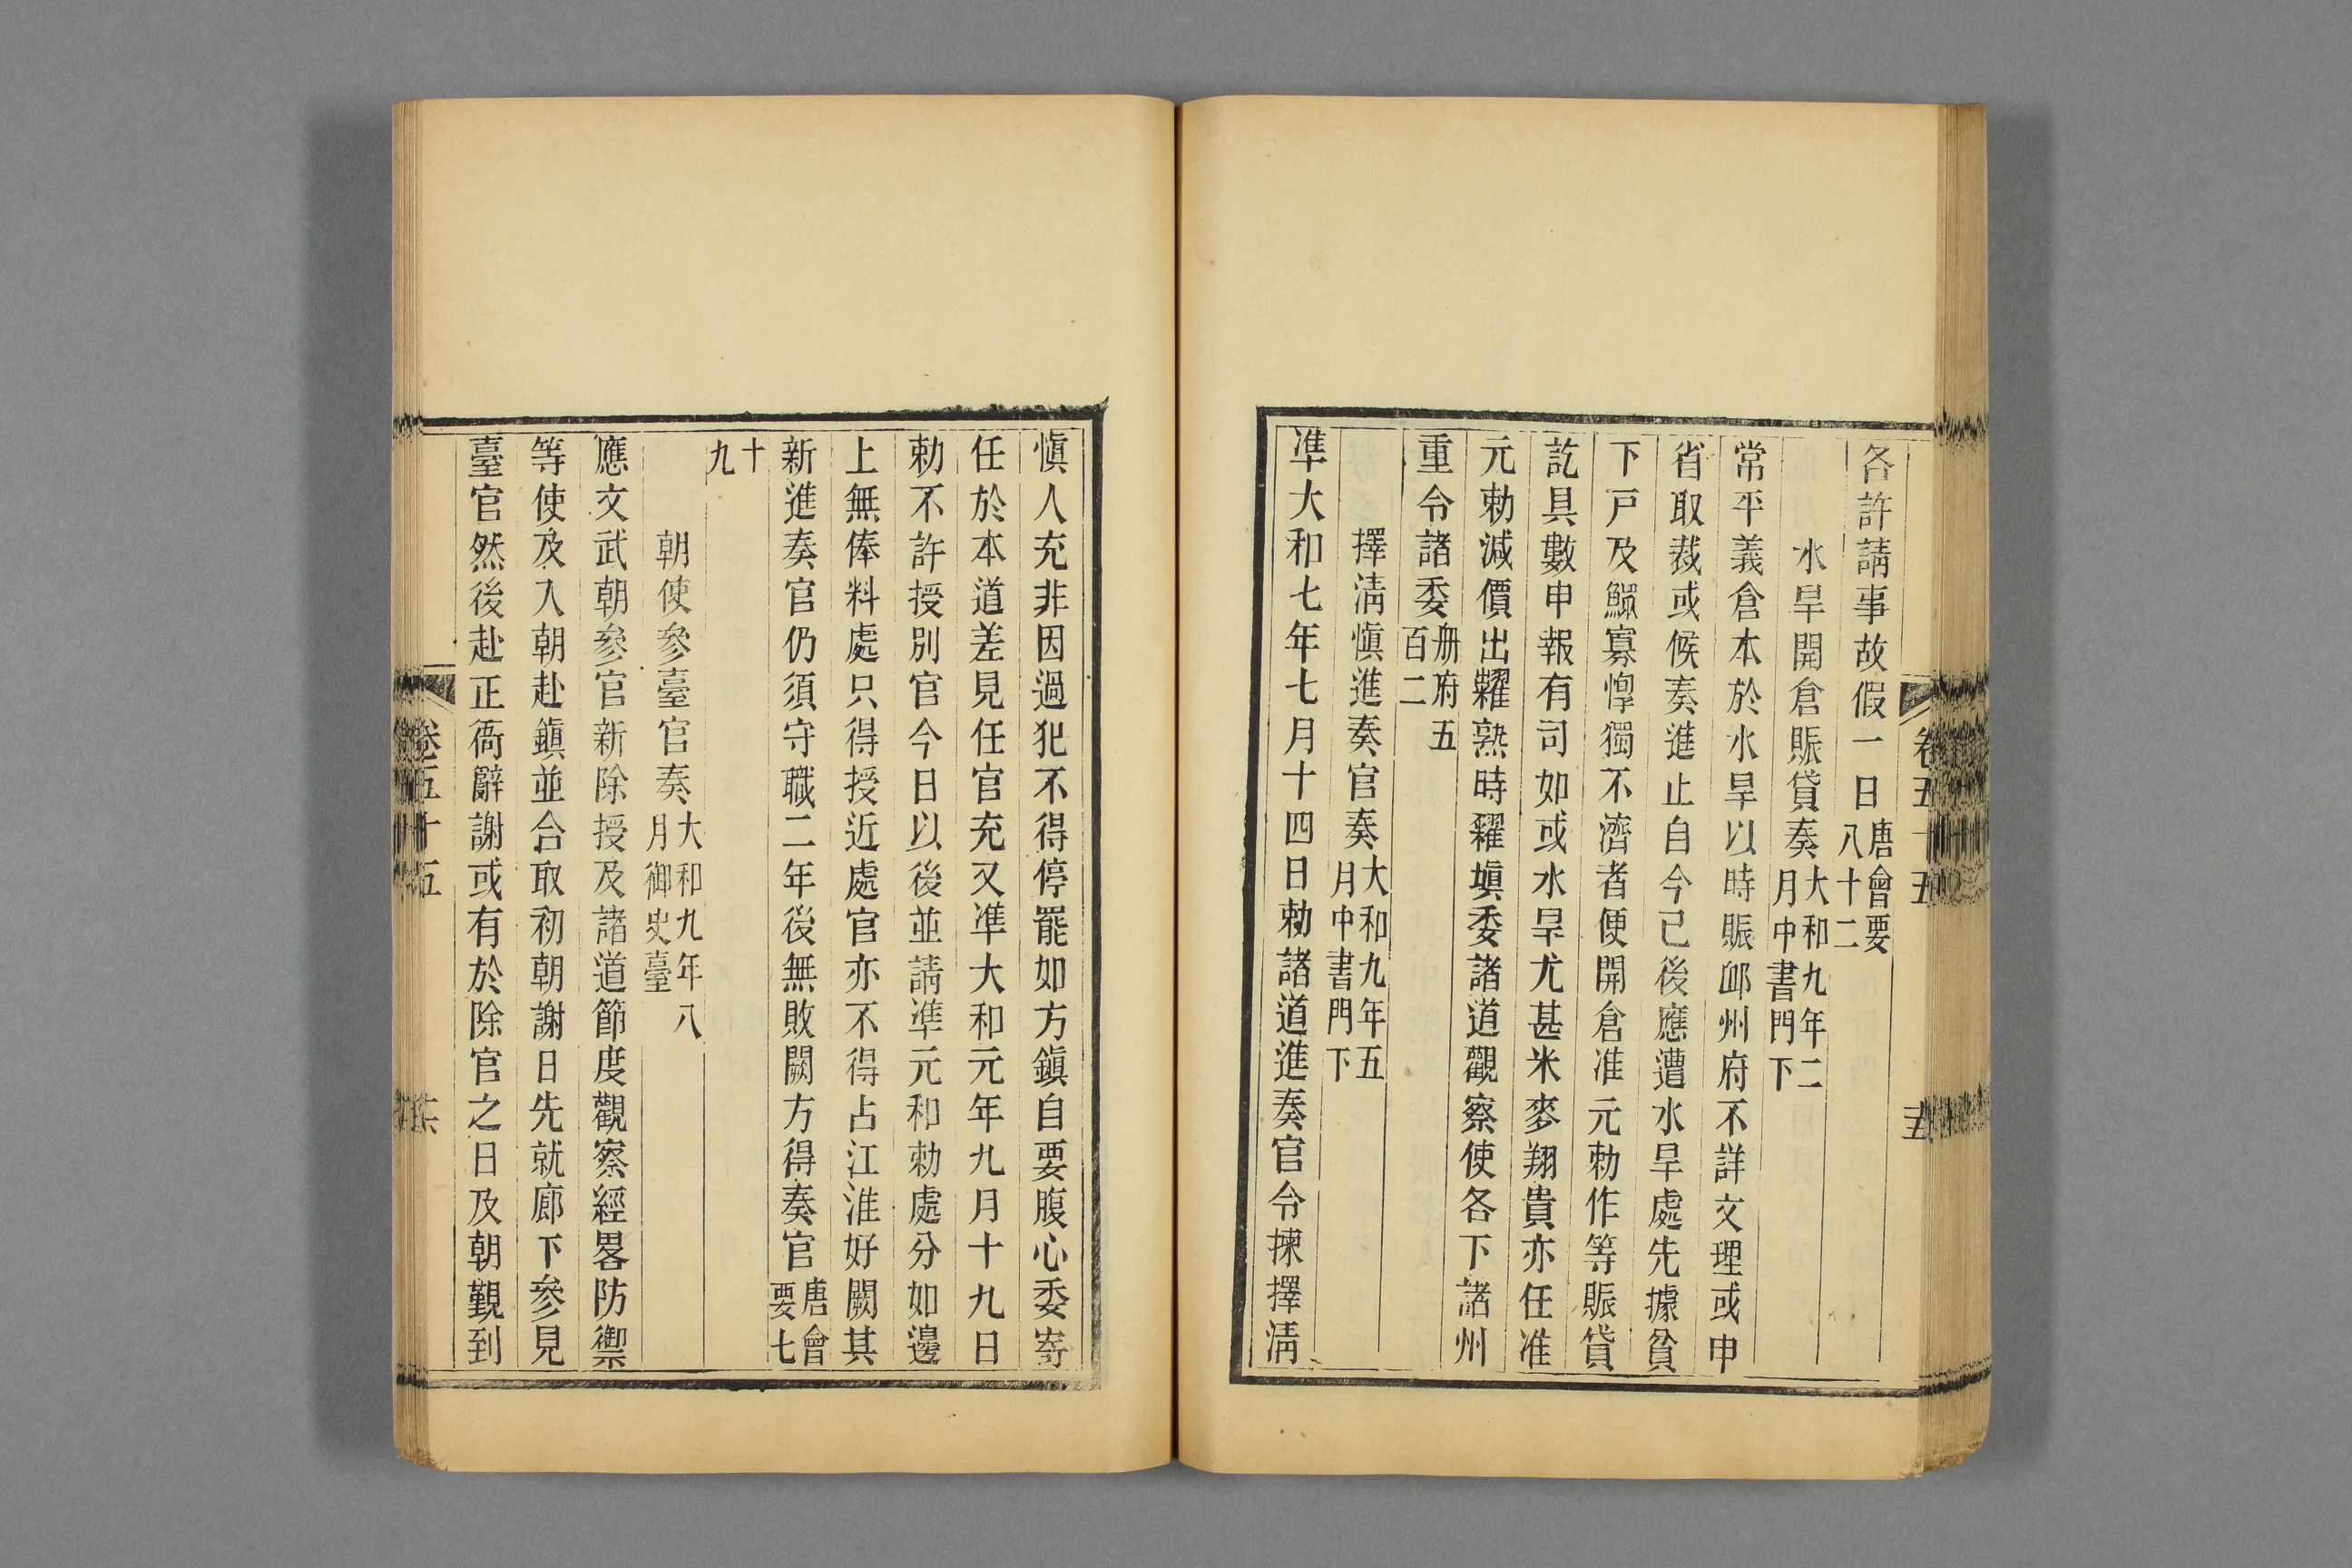 各許請事故假一日唐會要八十二
水旱開倉賑貸奏大和九年二月中書門下
常平義倉本於水旱以時賑䘏州府不詳文理或申
省取裁或候奏進止自今已後應遭水旱處先據貧
下戸及鰥寡惸獨不濟者便開倉准元勅作等賑貸
訖具數申報有司如或水旱尤甚米麥翔貴亦任准
元勅減價出糶熟時糴塡委諸道觀察使各下諸州
重令諸委册府五百二
擇淸愼進奏官奏大和九年五月中書門下
準大和七年七月十四日勅諸道進奏官令揀擇淸
卷五十五
五
愼人充非因過犯不得停罷如方鎭自要腹心委寄
任於本道差見任官充又準大和元年九月十九日
勅不許授別官今日以後並請準元和勅處分如邊
上無俸料處只得授近處官亦不得占江淮好闕其
新進奏官仍須守職二年後無敗闕方得奏官唐會要七
十九
朝使參臺官奏大和九年八月御史臺
應文武朝參官新除授及諸道節度觀察經畧防禦
等使及入朝赴鎭並合取初朝謝日先就廊下參見
臺官然後赴正衙辭謝或有於除官之日及朝覲到
卷五十五
六